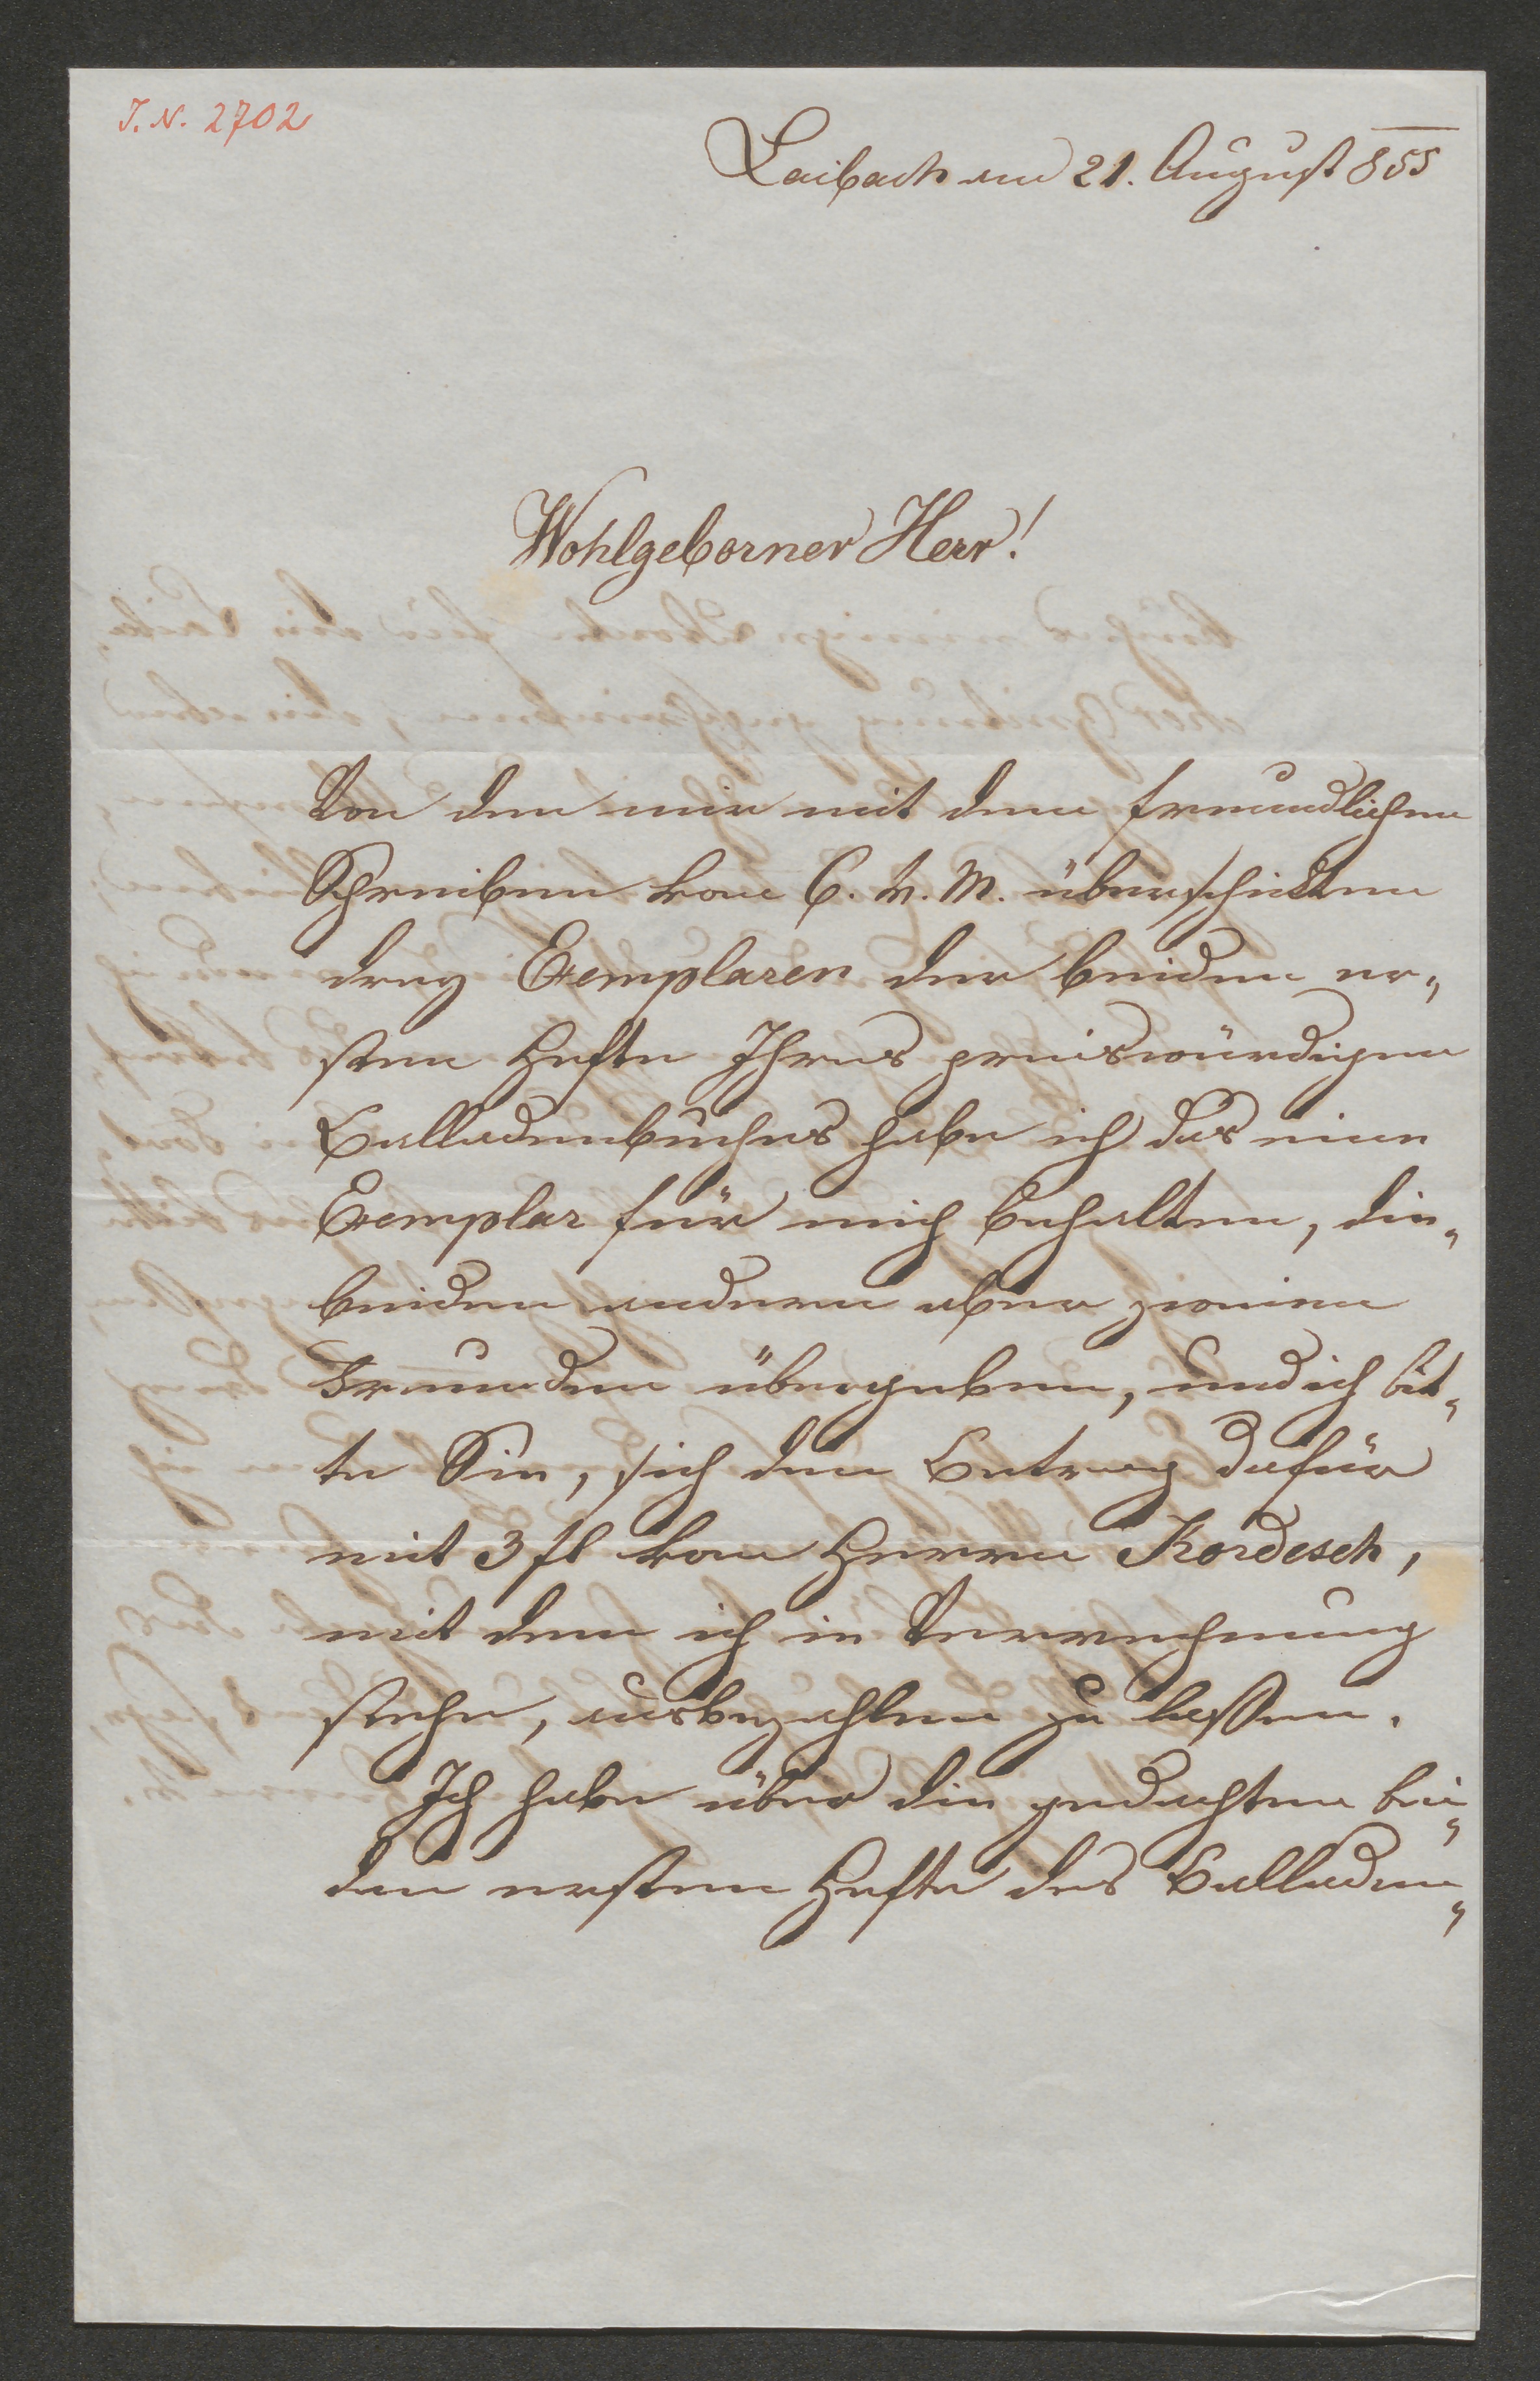 I. N. 2702
Laibach am 21. August 855
Wohlgeborner Herr!
Von den mir mit dem freundlichen
Schreiben vom 6. d. M. überschickten
drey Exemplaren der beiden er„
sten Hefte Ihres preiswürdigen
Balladenbuches habe ich das eine
Exemplar für mich behalten, die„
beiden anderen aber zweien
Freunden übergeben, und ich bit„
te Sie, sich den Betrag dafür
mit 3 fl vom Herrn Kordesch,
mit dem ich in Verrechnung
stehe, ausbezahlen zu lassen.
Ich habe über die gedachten bei„
den ersten Hefte des Balladen„